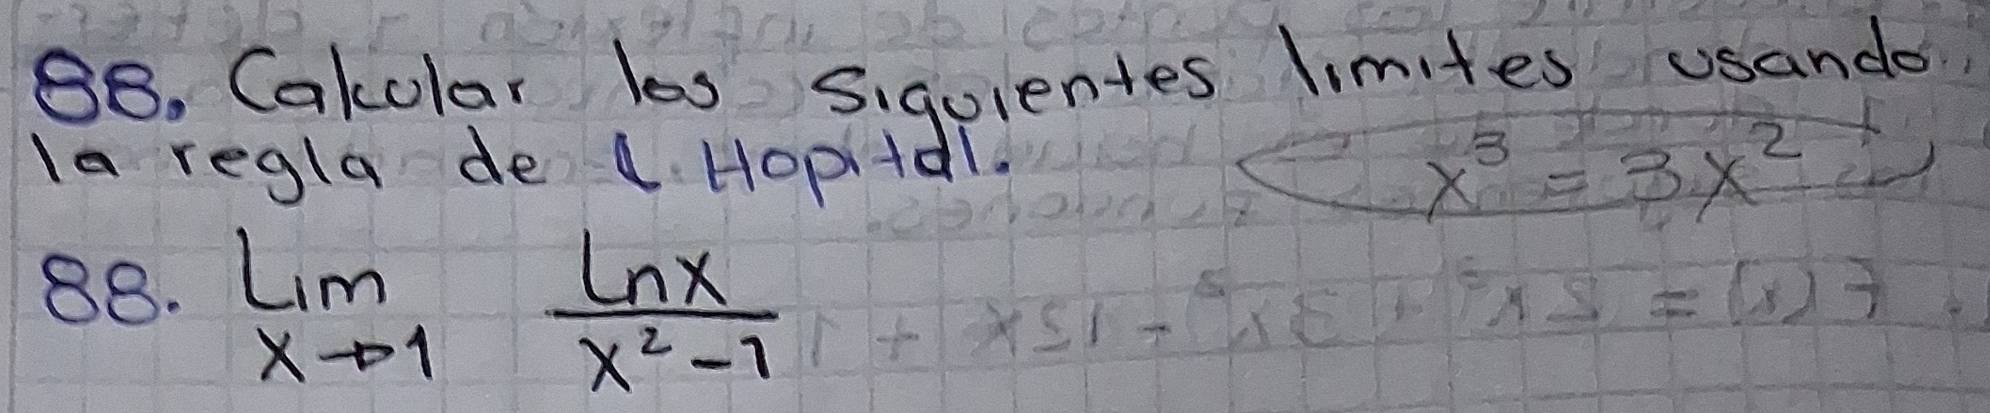 88. Calcular los siguientes limites usando
la regla de L Hopital.
x³ = 3x²
88. Lim x→1 lnx / x² - 1